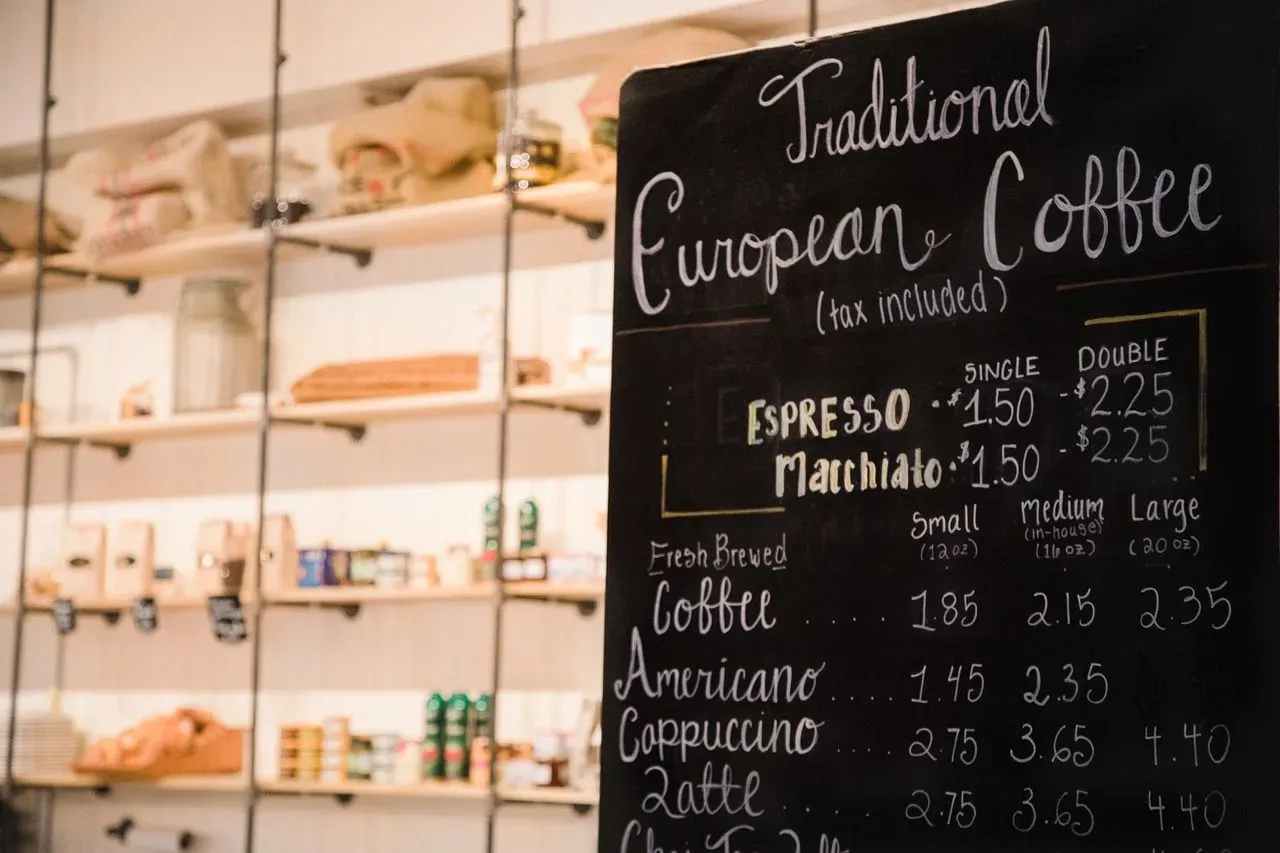 Traditional
European Coffee
(tax included)
SINGLE DOUBLE
ESPRESSO · $1.50 - $2.25
Macchiato · $1.50 - $2.25
Small Medium Large
(12oz) (in-house) (16oz) (20oz)
Fresh Brewed
Coffee ..... 1.85 2.15 2.35
Americano .... 1.45 2.35
Cappuccino .... 2.75 3.65 4.40
Latte .... 2.75 3.65 4.40